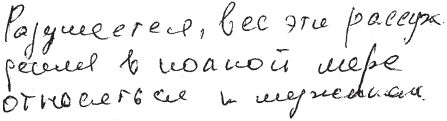 Разумеется, все эти рассуж
дения в полной мере
относяться к мужчинам